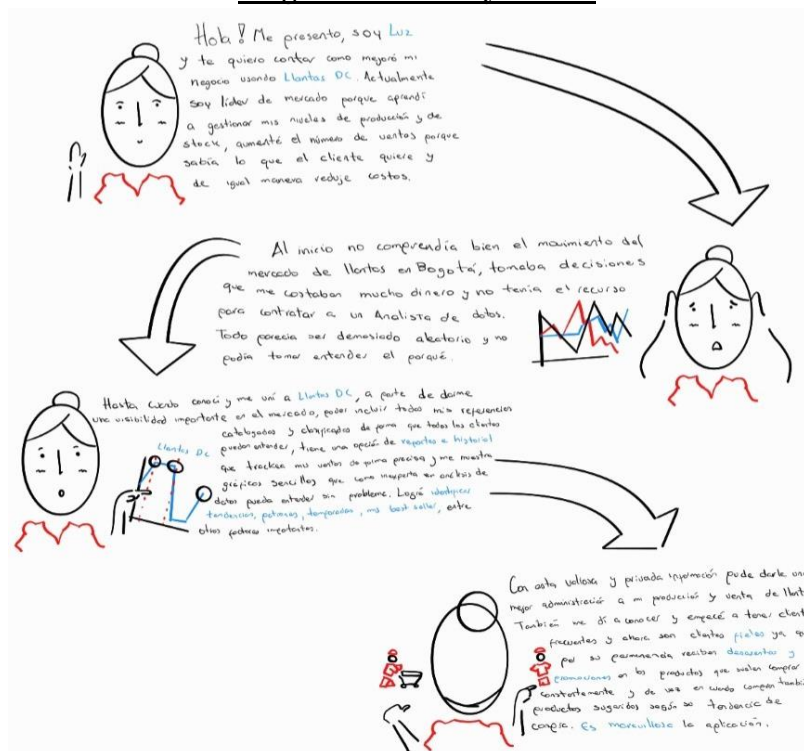 Hola! Me presento, soy Luz
y te quiero contar como mejoró mi
negocio usando Llantas DC. Actualmente
soy líder de mercado porque aprendí
a gestionar mis niveles de producción y de
stock, aumenté el número de ventas porque
sabía lo que el cliente quiere y
de igual manera reduje costos.
Al inicio no comprendía bien el movimiento del
mercado de llantas en Bogotá, tomaba decisiones
que me costaban mucho dinero y no tenía el recurso
para contratar a un Analista de datos.
Todo parecía ser demasiado aleatorio y no
podía tomar entender el porqué.
Hasta cuando conocí y me uní a Llantas DC, a parte de darme
una visibilidad importante en el mercado, poder incluir todas mis referencias
catalogadas y clasificadas de forma que todos los clientes
Llantas DC
puedan entender, tiene una opción de reportes e historial
que trackea mis ventas de forma precisa y me muestra
gráficos sencillos que como inexperta en análisis de
datos pueda entender sin problema. Logré identificar
tendencias, patrones, temporadas, mis best seller, entre
otros factores importantes.
Con esta valiosa y privada información pude darle una
mejor administración a mi producción y venta de
También me dí a conocer y empecé a tener
frecuentes y ahora son clientes fieles ya
por su permanencia reciben descuentos y
promociones en los productos que suelen comprar
constantemente y de vez en cuando compran
productos sugeridos según su tendencia de
compra. Es maravillosa la aplicación.